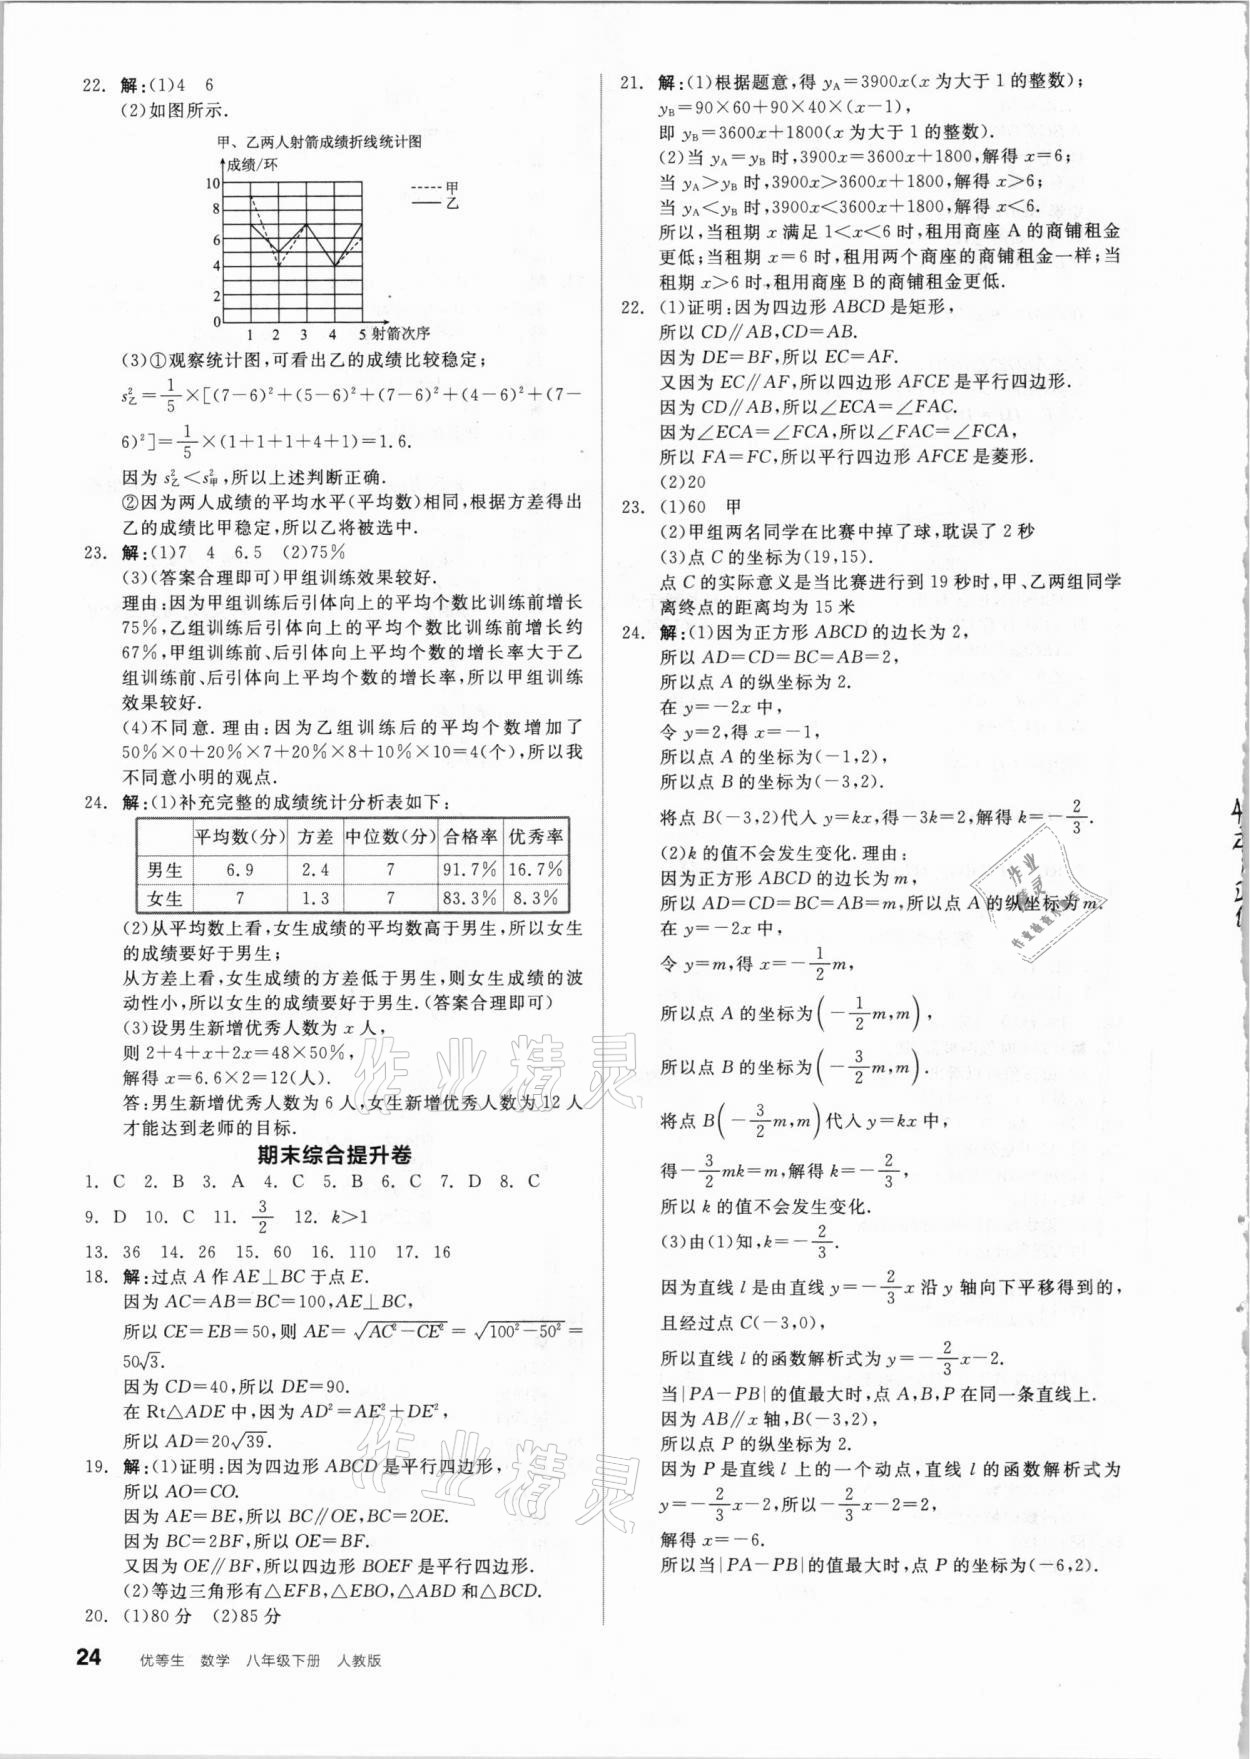 22. 解:(1)4 6
(2)如图所示.
甲、乙两人射箭成绩折线统计图
成绩/环
10
8
6
4
2
0
1 2 3 4 5 射箭次序
甲
乙
(3)①观察统计图,可看出乙的成绩比较稳定;
s²乙=1/5×[(7-6)²+(5-6)²+(7-6)²+(4-6)²+(7-
6)²]=1/5×(1+1+1+4+1)=1.6.
因为 s²乙<s²甲,所以上述判断正确.
②因为两人成绩的平均水平(平均数)相同,根据方差得出
乙的成绩比甲稳定,所以乙将被选中.
23. 解:(1)7 4 6.5 (2)75%
(3)(答案合理即可)甲组训练效果较好.
理由:因为甲组训练后引体向上的平均个数比训练前增长
75%,乙组训练后引体向上的平均个数比训练前增长约
67%,甲组训练前、后引体向上平均个数的增长率大于乙
组训练前、后引体向上平均个数的增长率,所以甲组训练
效果较好.
(4)不同意.理由:因为乙组训练后的平均个数增加了
50%×0+20%×7+20%×8+10%×10=4(个),所以我
不同意小明的观点.
24. 解:(1)补充完整的成绩统计分析表如下:
平均数(分) 方差 中位数(分) 合格率 优秀率
男生 6.9 2.4 7 91.7% 16.7%
女生 7 1.3 7 83.3% 8.3%
(2)从平均数上看,女生成绩的平均数高于男生,所以女生
的成绩要好于男生;
从方差上看,女生成绩的方差低于男生,则女生成绩的波
动性小,所以女生的成绩要好于男生.(答案合理即可)
(3)设男生新增优秀人数为 x 人,
则 2+4+x+2x=48×50%,
解得 x=6.6×2=12(人).
答:男生新增优秀人数为 6 人,女生新增优秀人数为 12 人
才能达到老师的目标.
期末综合提升卷
1. C 2. B 3. A 4. C 5. B 6. C 7. D 8. C
9. D 10. C 11. 3/2 12. k>1
13. 36 14. 26 15. 60 16. 110 17. 16
18. 解:过点 A 作 AE⊥BC 于点 E.
因为 AC=AB=BC=100,AE⊥BC,
所以 CE=EB=50,则 AE=√(AC²-CE²)=√(100²-50²)=
50√3.
因为 CD=40,所以 DE=90.
在 Rt△ADE 中,因为 AD²=AE²+DE²,
所以 AD=20√39.
19. 解:(1)证明:因为四边形 ABCD 是平行四边形,
所以 AO=CO.
因为 AE=BE,所以 BC∥OE,BC=2OE.
因为 BC=2BF,所以 OE=BF.
又因为 OE∥BF,所以四边形 BOEF 是平行四边形.
(2)等边三角形有△EFB,△EBO,△ABD 和△BCD.
20. (1)80 分 (2)85 分
24 优等生 数学 八年级下册 人教版
21. 解:(1)根据题意,得 yA=3900x(x 为大于 1 的整数);
yB=90×60+90×40×(x-1),
即 yB=3600x+1800(x 为大于 1 的整数).
(2)当 yA=yB 时,3900x=3600x+1800,解得 x=6;
当 yA>yB 时,3900x>3600x+1800,解得 x>6;
当 yA<yB 时,3900x<3600x+1800,解得 x<6.
所以,当租期 x 满足 1<x<6 时,租用商座 A 的商铺租金
更低;当租期 x=6 时,租用两个商座的商铺租金一样;当
租期 x>6 时,租用商座 B 的商铺租金更低.
22. (1)证明:因为四边形 ABCD 是矩形,
所以 CD∥AB,CD=AB.
因为 DE=BF,所以 EC=AF.
又因为 EC∥AF,所以四边形 AFCE 是平行四边形.
因为 CD∥AB,所以∠ECA=∠FAC.
因为∠ECA=∠FCA,所以∠FAC=∠FCA,
所以 FA=FC,所以平行四边形 AFCE 是菱形.
(2)20
23. (1)60 甲
(2)甲组两名同学在比赛中掉了球,耽误了 2 秒
(3)点 C 的坐标为(19,15).
点 C 的实际意义是当比赛进行到 19 秒时,甲、乙两组同学
离终点的距离均为 15 米
24. 解:(1)因为正方形 ABCD 的边长为 2,
所以 AD=CD=BC=AB=2,
所以点 A 的纵坐标为 2.
在 y=-2x 中,
令 y=2,得 x=-1,
所以点 A 的坐标为(-1,2),
所以点 B 的坐标为(-3,2).
将点 B(-3,2)代入 y=kx,得-3k=2,解得 k=-2/3.
(2)k 的值不会发生变化.理由:
因为正方形 ABCD 的边长为 m,
所以 AD=CD=BC=AB=m,所以点 A 的纵坐标为 m.
在 y=-2x 中,
令 y=m,得 x=-1/2m,
所以点 A 的坐标为(-1/2m,m),
所以点 B 的坐标为(-3/2m,m).
将点 B(-3/2m,m)代入 y=kx 中,
得-3/2mk=m,解得 k=-2/3,
所以 k 的值不会发生变化.
(3)由(1)知,k=-2/3.
因为直线 l 是由直线 y=-2/3x 沿 y 轴向下平移得到的,
且经过点 C(-3,0),
所以直线 l 的函数解析式为 y=-2/3x-2.
当|PA-PB|的值最大时,点 A,B,P 在同一条直线上.
因为 AB∥x 轴,B(-3,2),
所以点 P 的纵坐标为 2.
因为 P 是直线 l 上的一个动点,直线 l 的函数解析式为
y=-2/3x-2,所以-2/3x-2=2,
解得 x=-6.
所以当|PA-PB|的值最大时,点 P 的坐标为(-6,2).
作业精灵
作业精灵
作业精灵